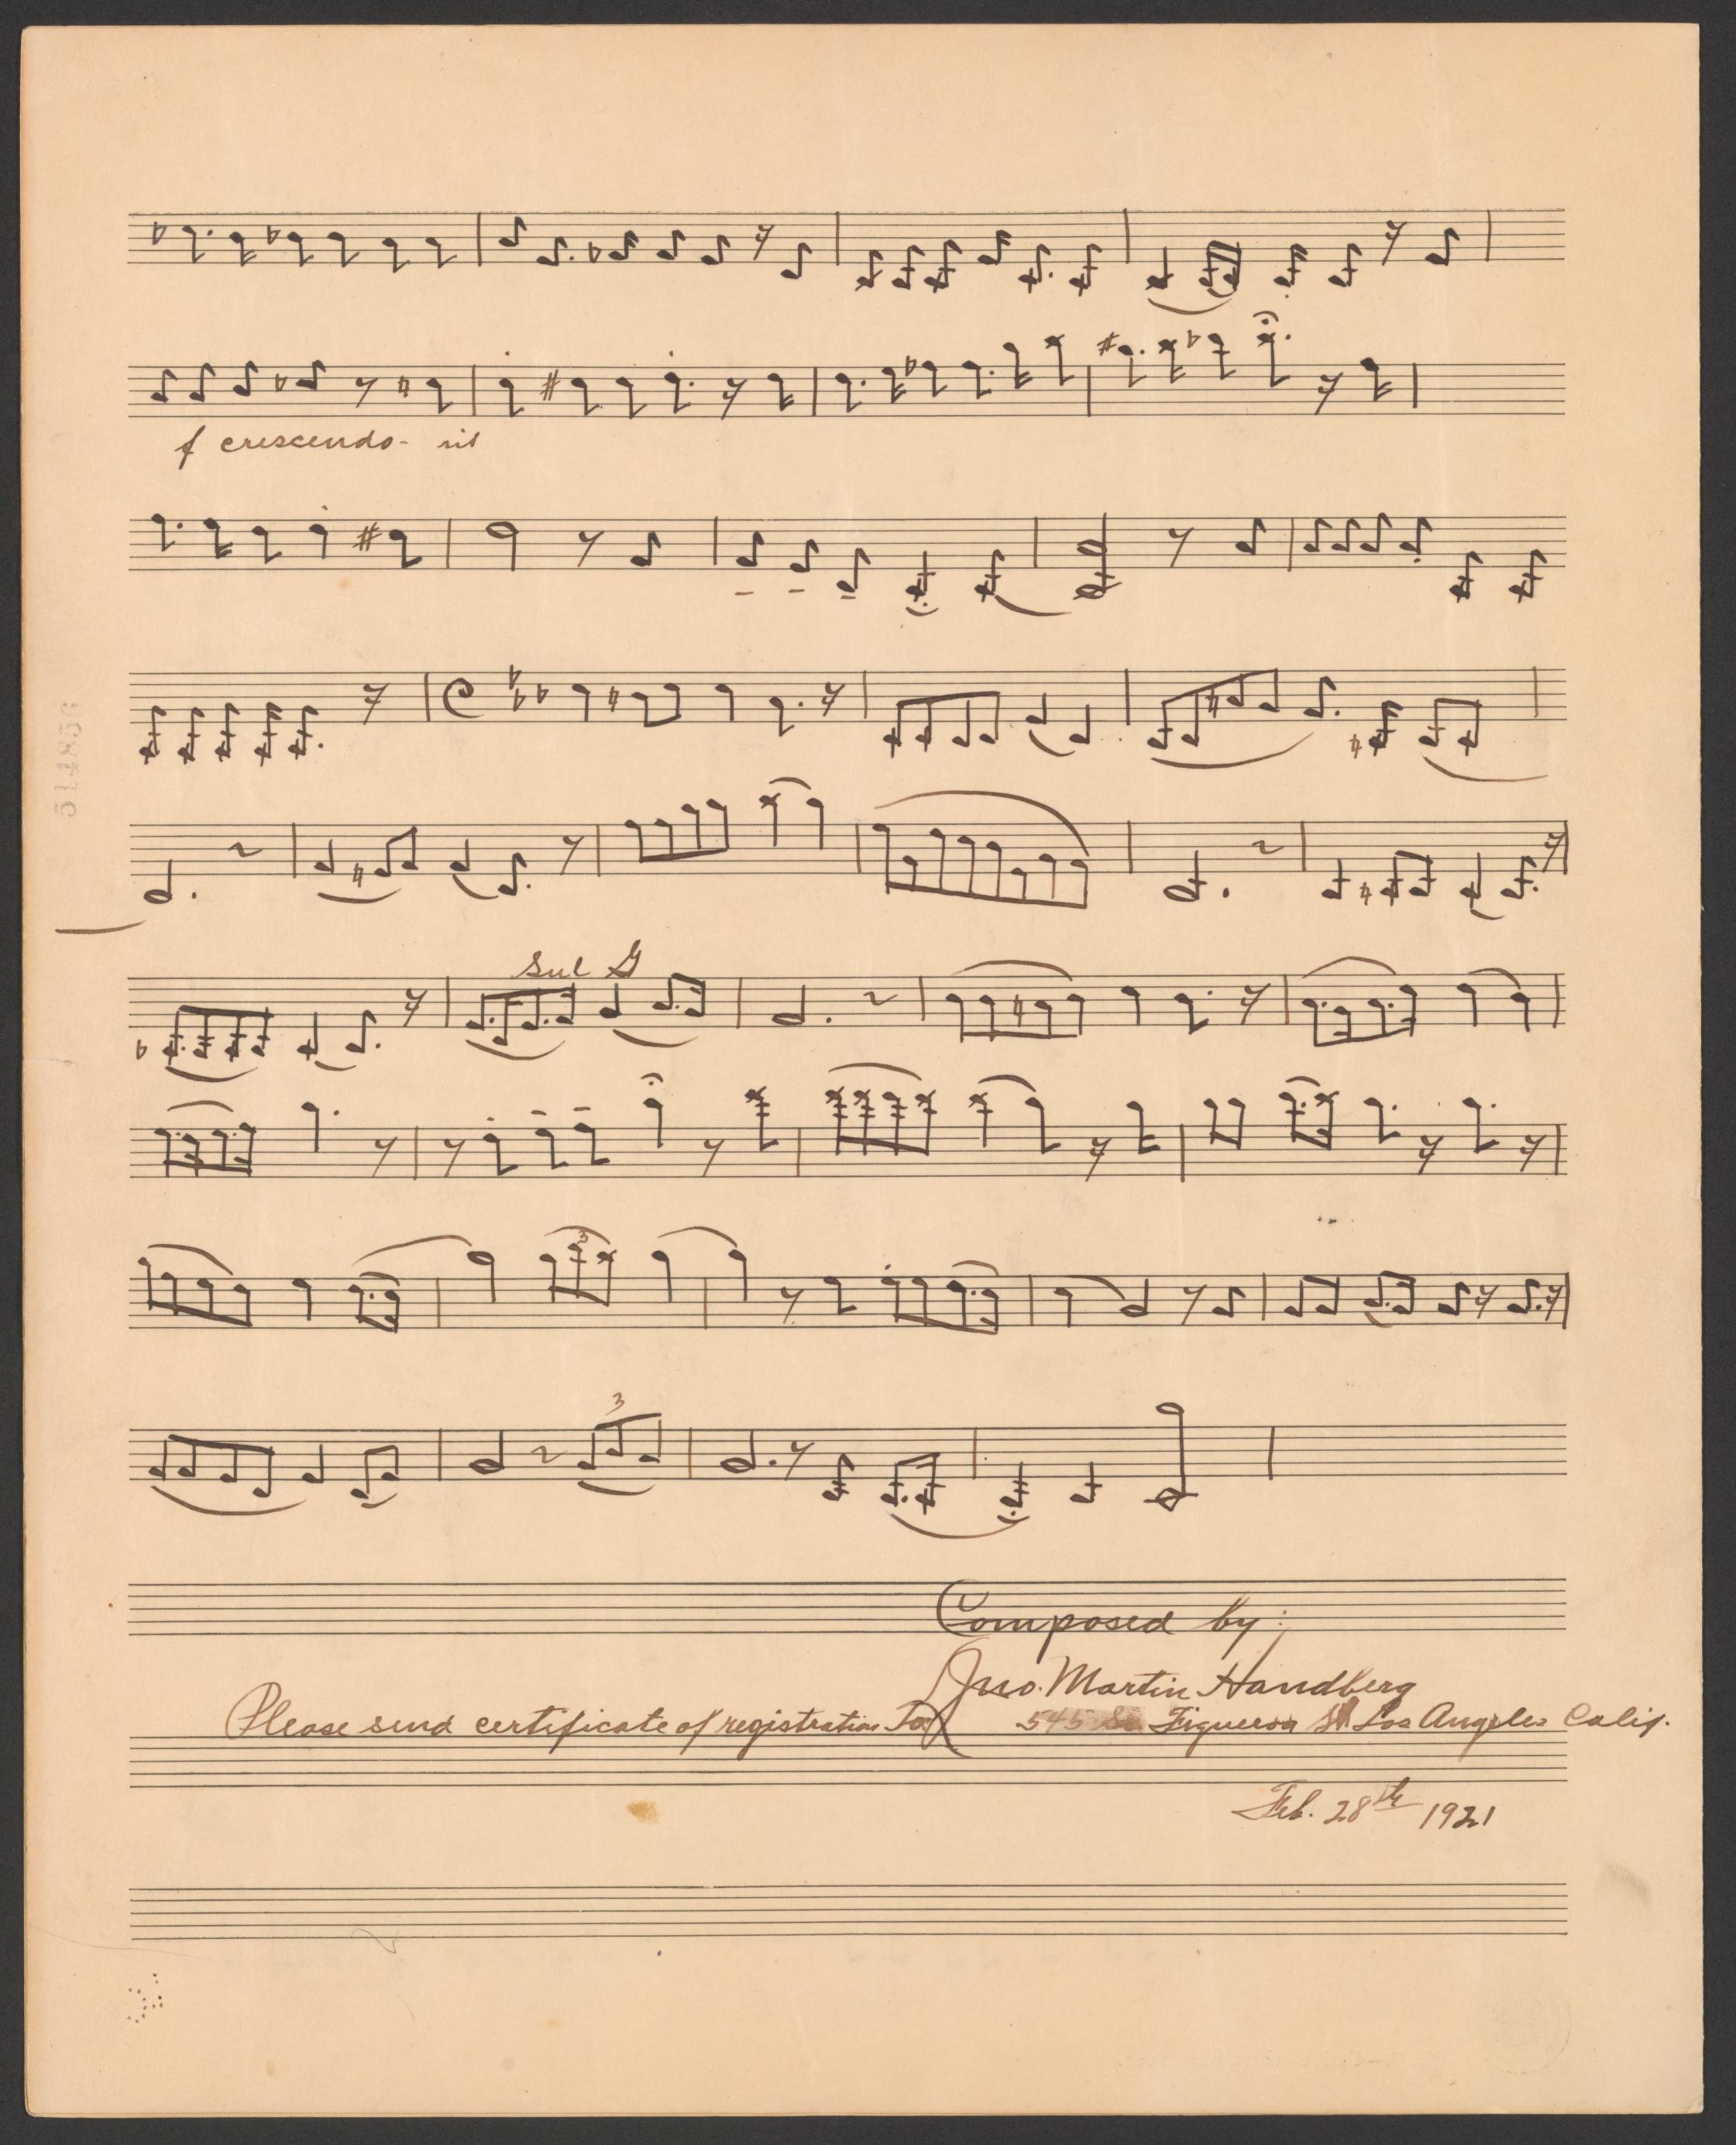 f crescendo- rit
514856
Sul G
3
3
Composed by:
Jno. Martin Handberg
Please send certificate of registration To 545 So Figueroa St Los Angeles Calif.
Feb. 28th 1921